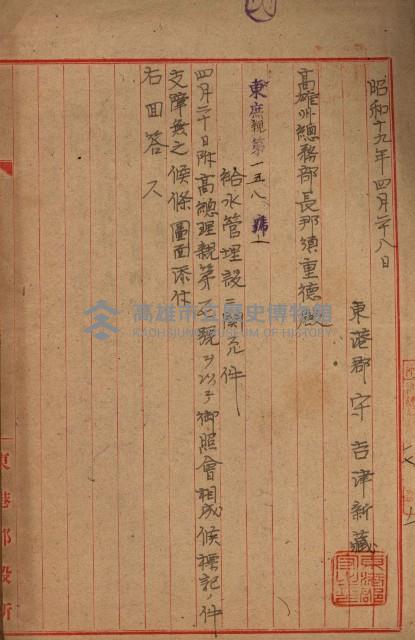 昭和十九年四月二十八日
東港郡守 吉津新藏
高雄州總務部長那須重德殿
東庶親第一五八號ノ一
給水管埋設ニ關スル件
四月二十日附高總理親第 號ヲ以テ御照會相成候標記ノ件
支障無之候條圖面添付
右回答ス
高雄市立歷史博物館
KAOHSIUNG MUSEUM OF HISTORY
東港郡役所